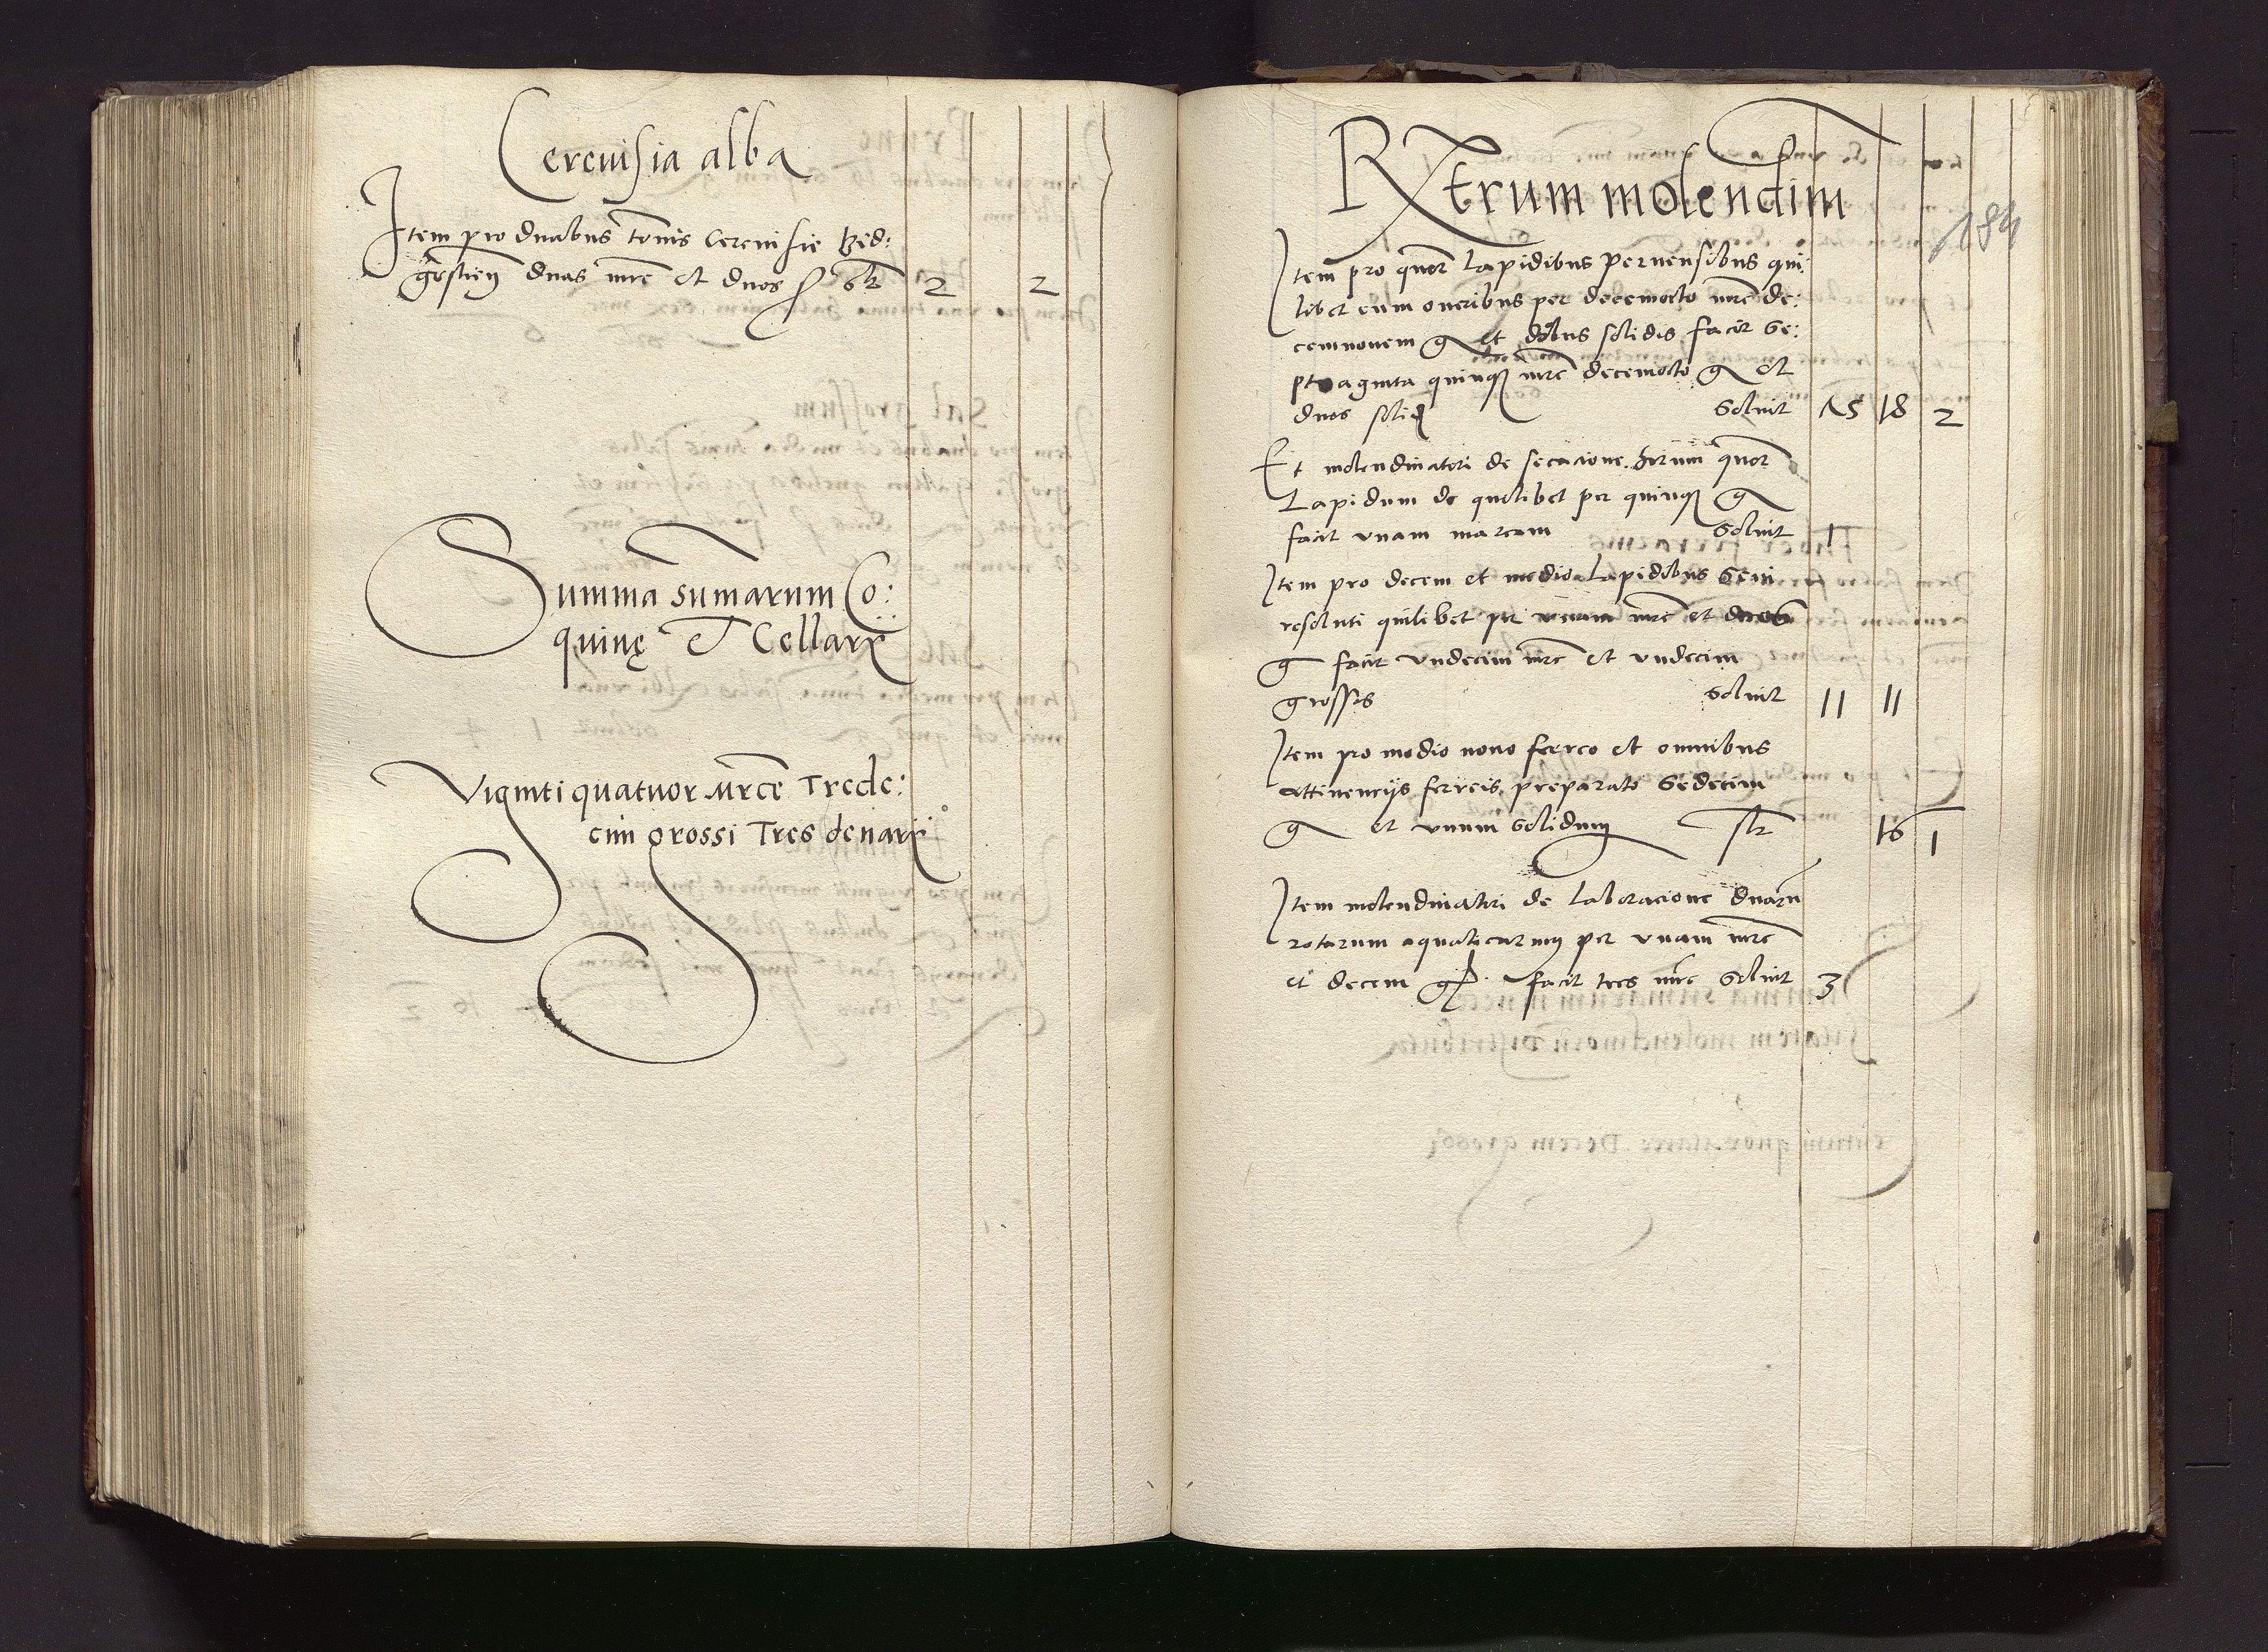 Cerevisia alba
Item pro duabus tonnis cerevisie
duas mrc et duos s 2 2
Summa sumarum Co:
quinę et Cellarij
Viginti quatuor mrce Trede:
cim grossi Tres denarij
Rerum molendini
184
Item pro quor lapidibus pernensibus qui:
libet cum oneribus per decemocto mrc de:
cemnouem g et duobus solidis facit se:
ptuaginta quinq mrc decemocto g et
duos solid soluit 75 18 2
Et molendinatori de secacione horum quor
Lapidum de quolibet per quinq g
facit vnam marcam soluit 1
Item pro decem et medio lapidibus sevi
resoluti quilibet per vnam mrc et duos
g facit vndecim mrc et vndecim
grossis soluit 11 11
Item pro modio nouo ferreo et omnibus
attinencijs ferreis preparato sedecim
g et vnum solidum slt 16 1
Item molendinatori de laboracione duaru
rotarum aquaticarum per vnam mrc
et decem g facit tres mrc soluit 3